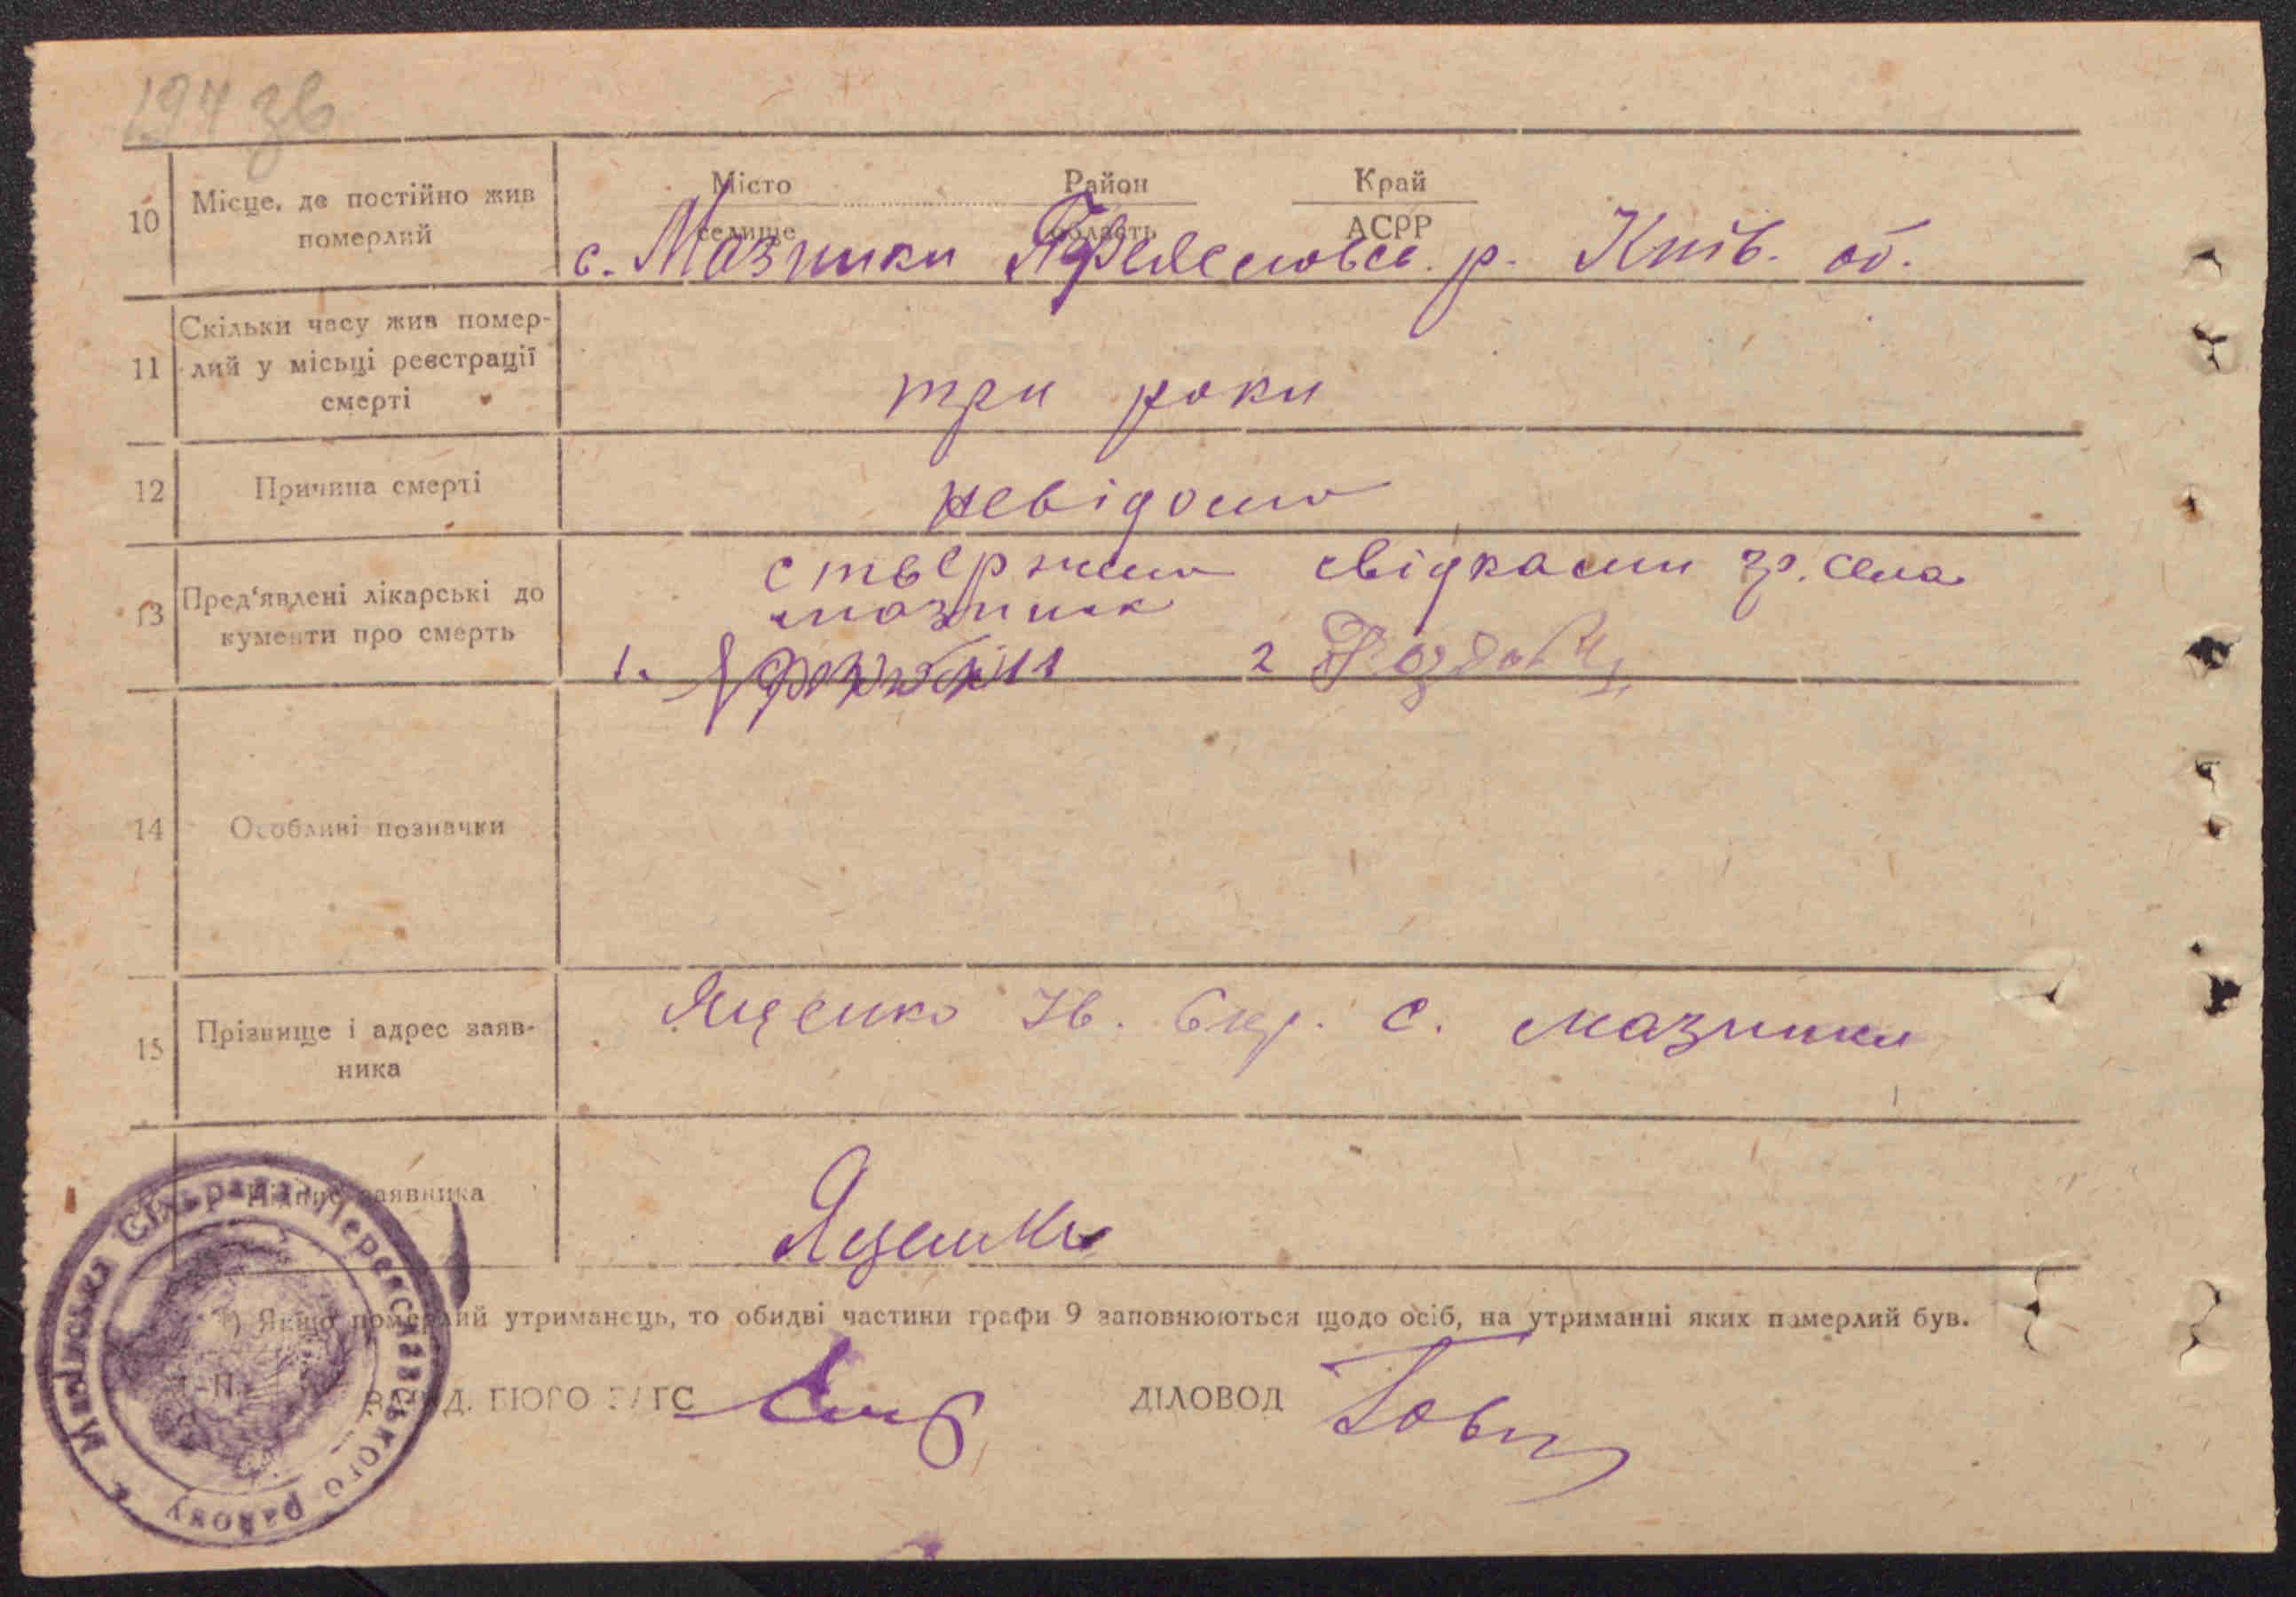 194 зв
10 Місце, де постійно жив померлий
Місто селище Район область Край АСРР
с. Мазинки р. Київ. об.
11 Скільки часу жив помер-
лий у місьці реєстрації
смерті
три роки
12 Причина смерті
невідомо
13 Пред'явлені лікарські до
кументи про смерть
свідками гр. села
мазинк
1. 2
14 Особливі позначки
15 Прізвище і адрес заяв-
ника
Яценко Ів. с. мазинки
Підпис заявника
Яценко
*) Якщо померлий утриманець, то обидві частини графи 9 заповнюються щодо осіб, на утриманні яких памерлий був.
М. П.
ЗАВІД. БЮРО ЗАГС ДІЛОВОД
Сільрада Переяславського району